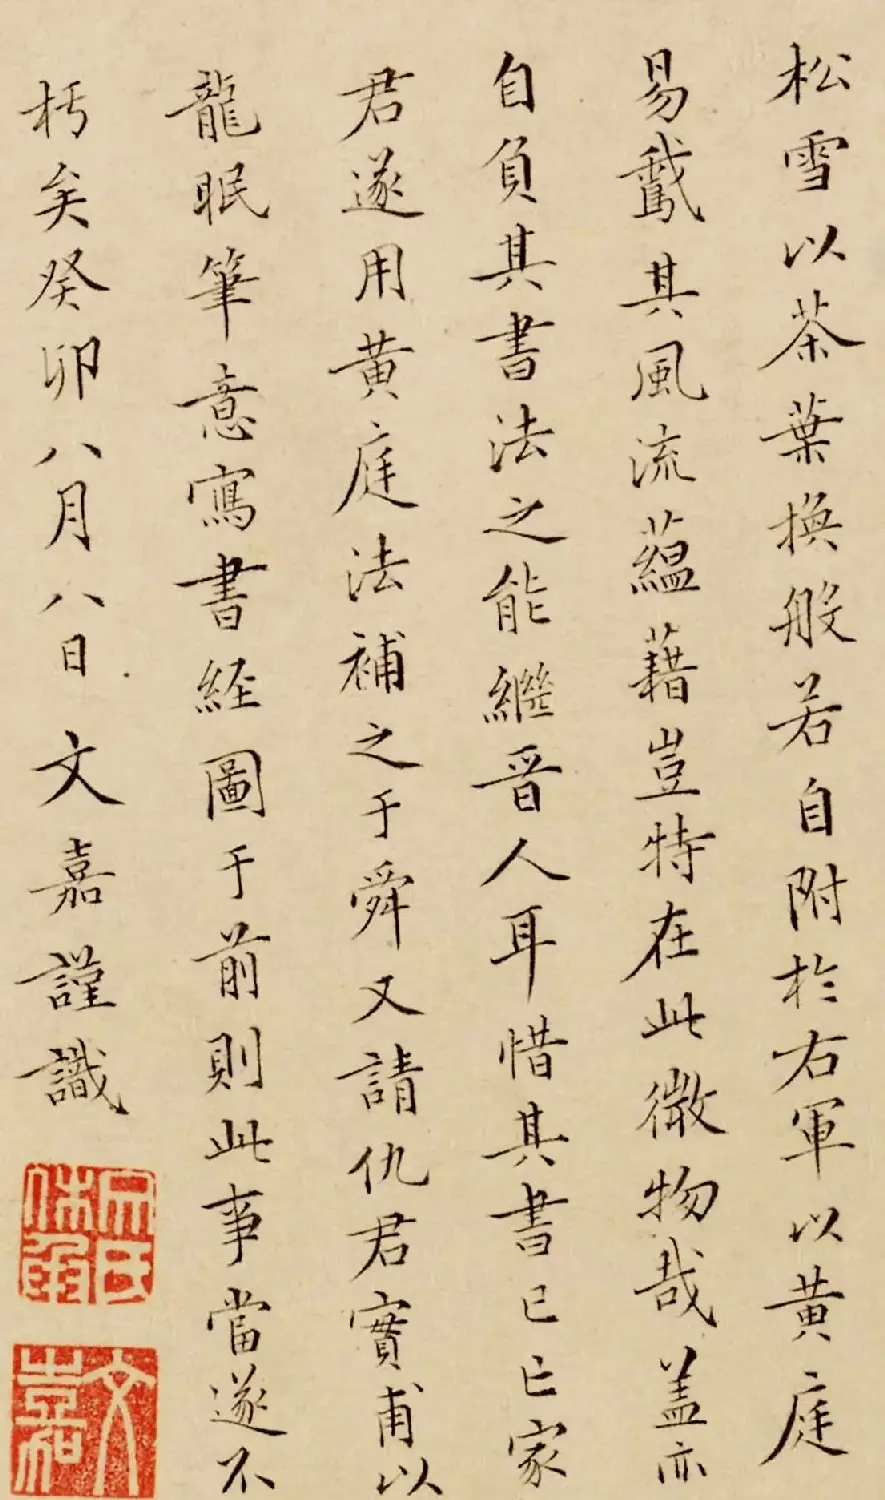 松雪以茶葉換般若自附於右軍以黃庭
易鵞其風流蘊藉豈特在此微物哉蓋亦
自負其書法之能繼晉人耳惜其書已亡家
君遂用黃庭法補之于舜又請仇君實甫以
龍眠筆意寫書經圖于前則此事當遂不
朽矣癸卯八月八日文嘉謹識
文嘉